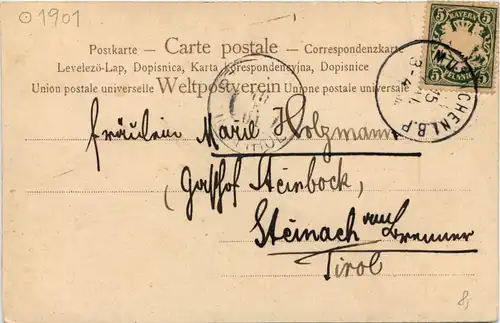 1901
Postkarte – Carte postale – Correspondenzkarte
Levelező-Lap, Dopisnica, Karta korespondencyjna, Dopisnice
Union postale universelle Weltpostverein Unione postale universale
BAYERN
5 5
PFENNIG
MÜNCHEN I. B.P.
Fräulein Marie Holzmann
(Gasthof Steinbock,
Steinach am Brenner
Tirol